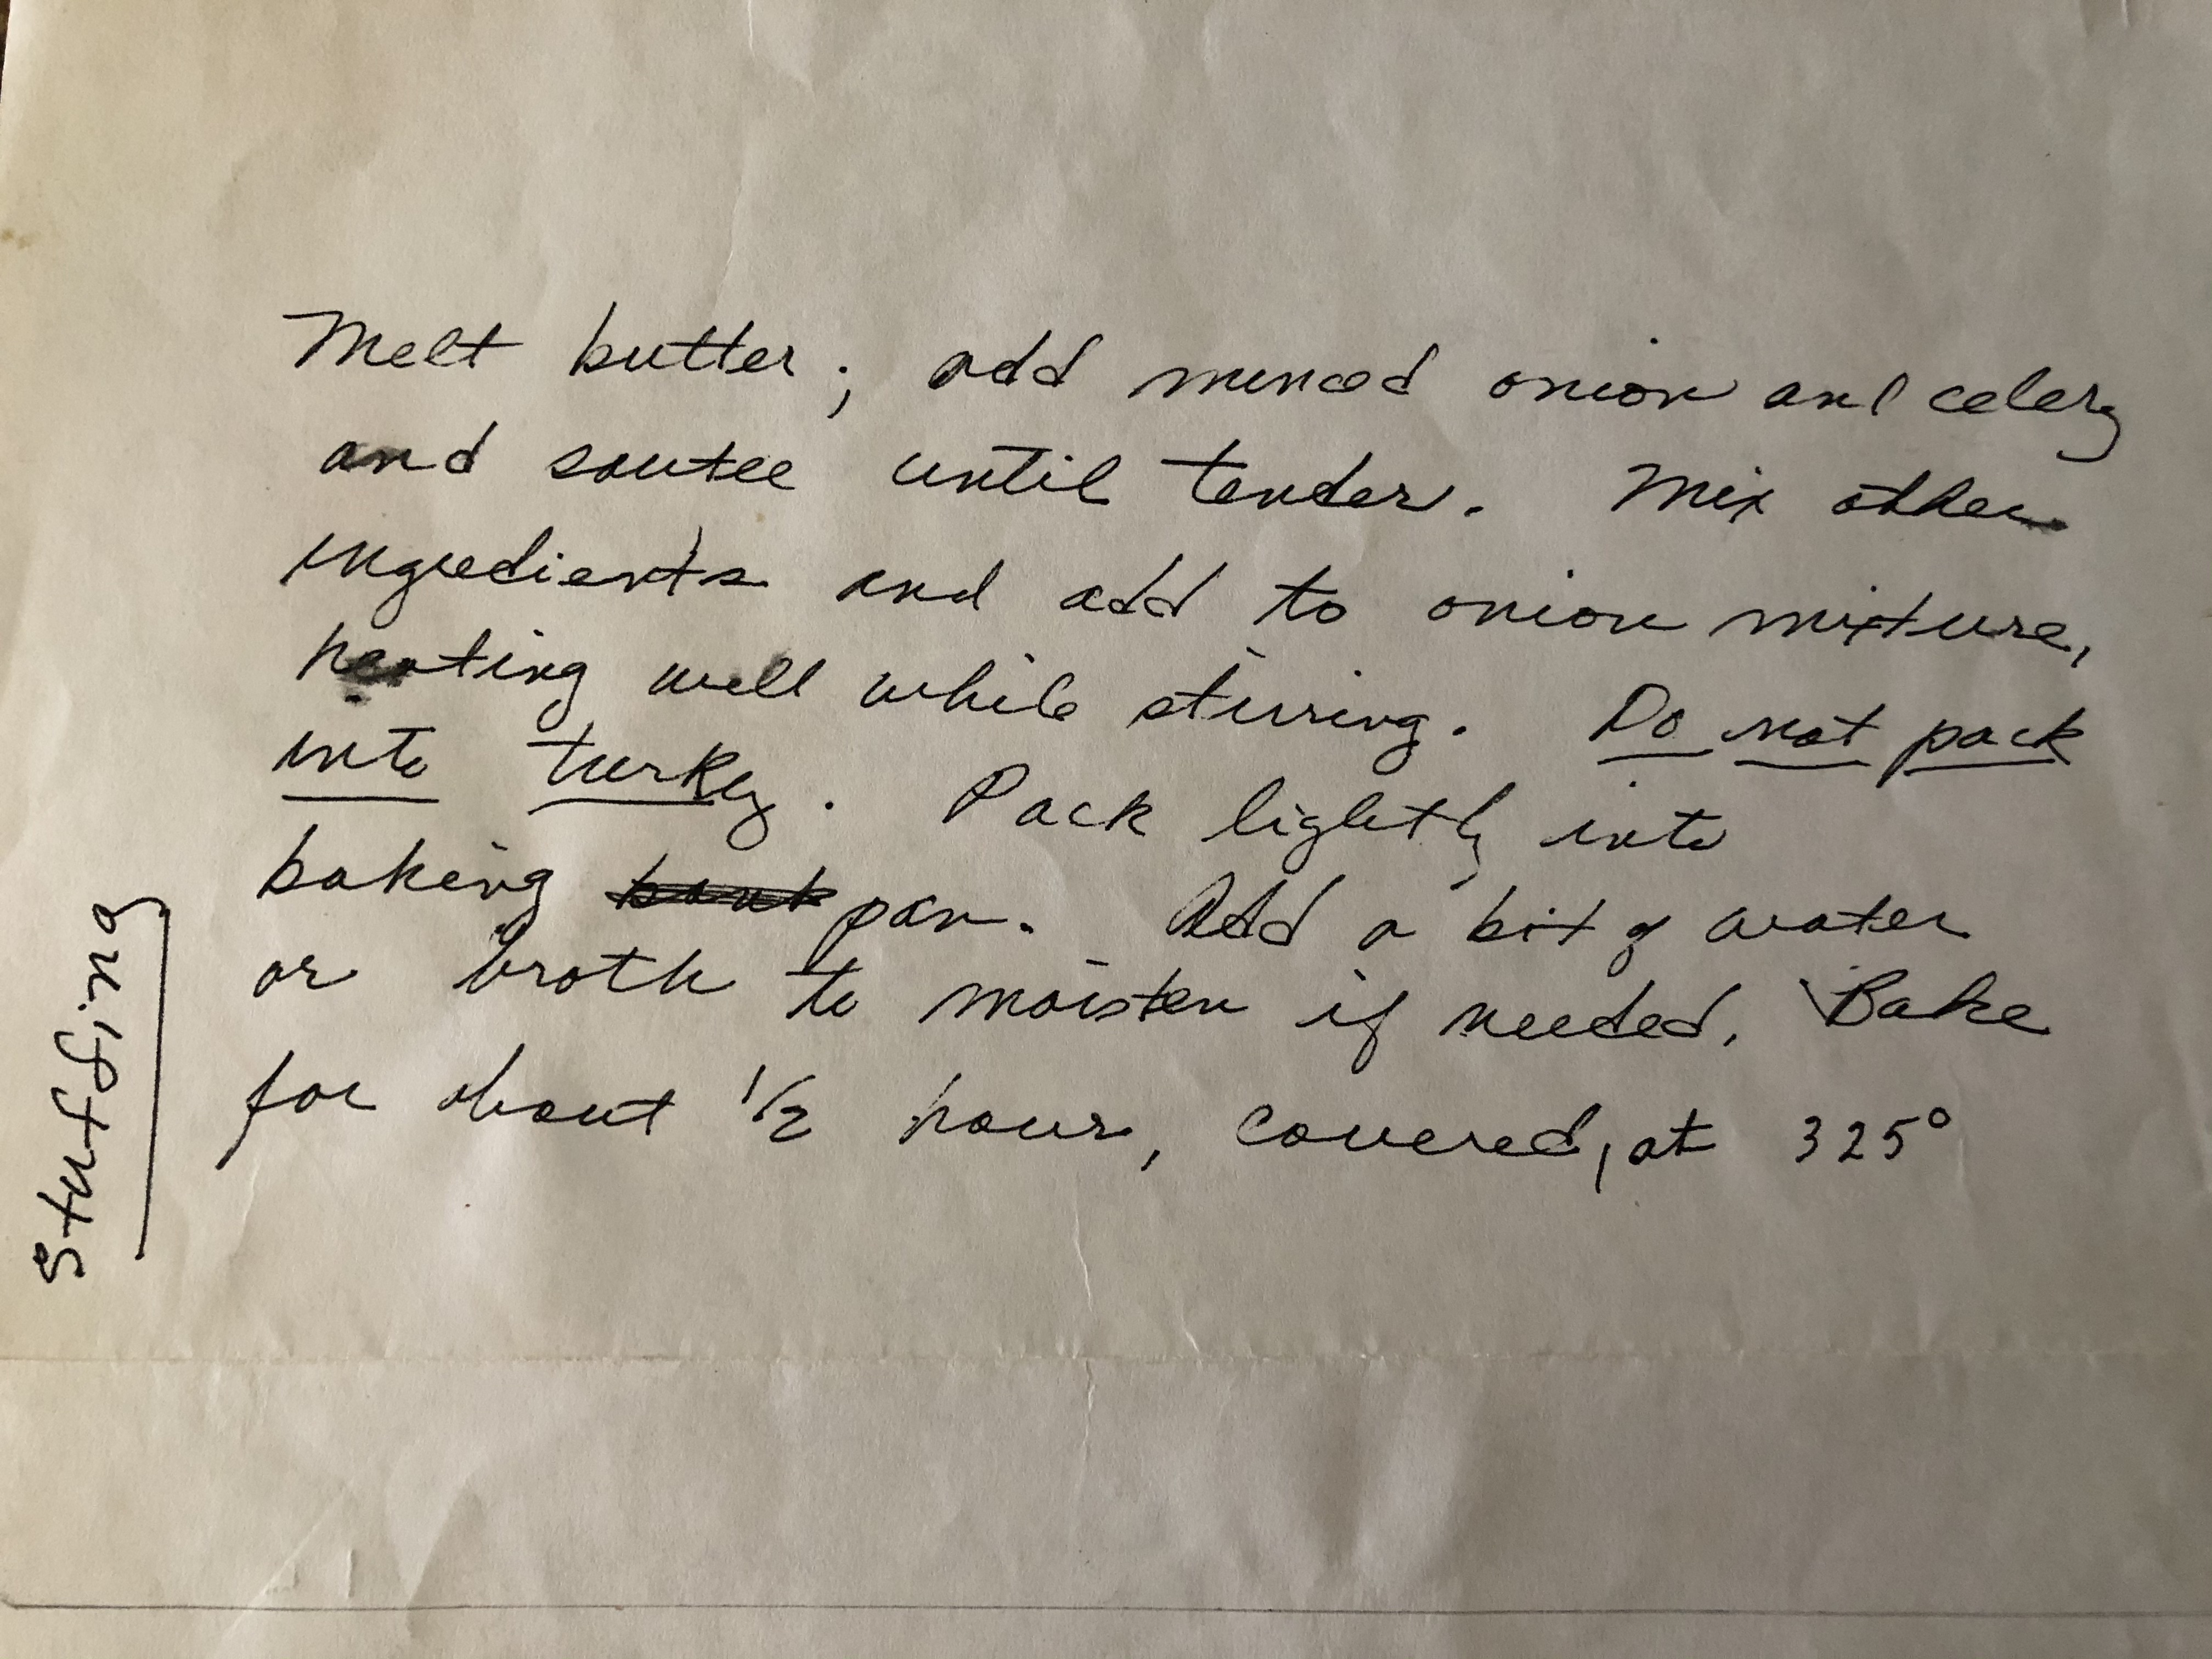 Melt butter; add minced onion and celery
and soutee until tender. Mix other
ingredients and add to onion mixture,
heating well while stirring. Do not pack
into turkey. Pack lightly into
baking pan. Add a bit of water
or broth to moisten if needed. Bake
for about 1/2 hour, covered, at 325°
Stuffing